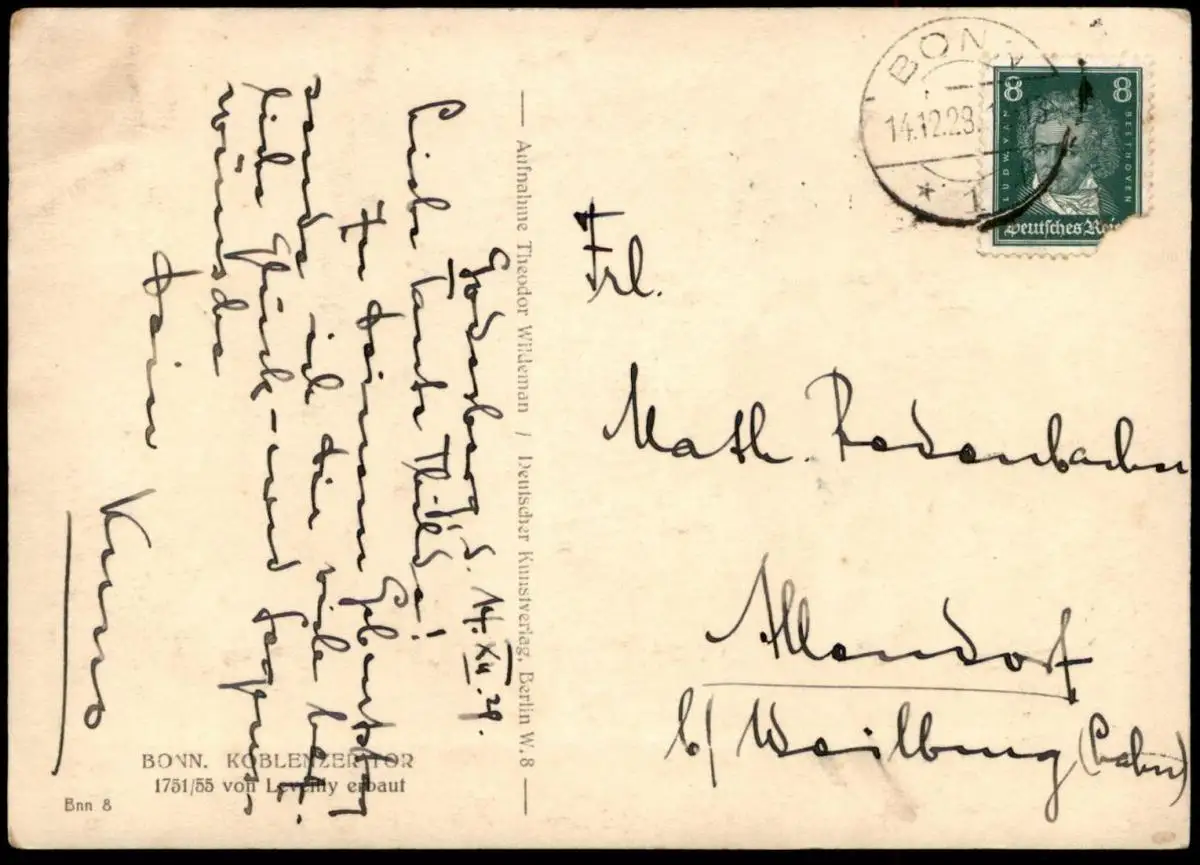 Godesberg d. 14. XII. 29.
Liebe Tante Thilda!
Zu Deinem Geburtstag
sende ich Dir viele herz-
liche Glück- und Segens-
wünsche
Dein
Kuno
Aufnahme Theodor Wildeman / Deutscher Kunstverlag, Berlin W. 8
BONN. KOBLENZER TOR
1751/55 von Leveilly erbaut
Bnn 8
BONN
14.12.29.
* 1
8 8
LUDW. VAN BEETHOVEN
Deutsches Reich
Frl.
Math. Rodenbacher
Allendorf
b/ Weilburg (Lahn)